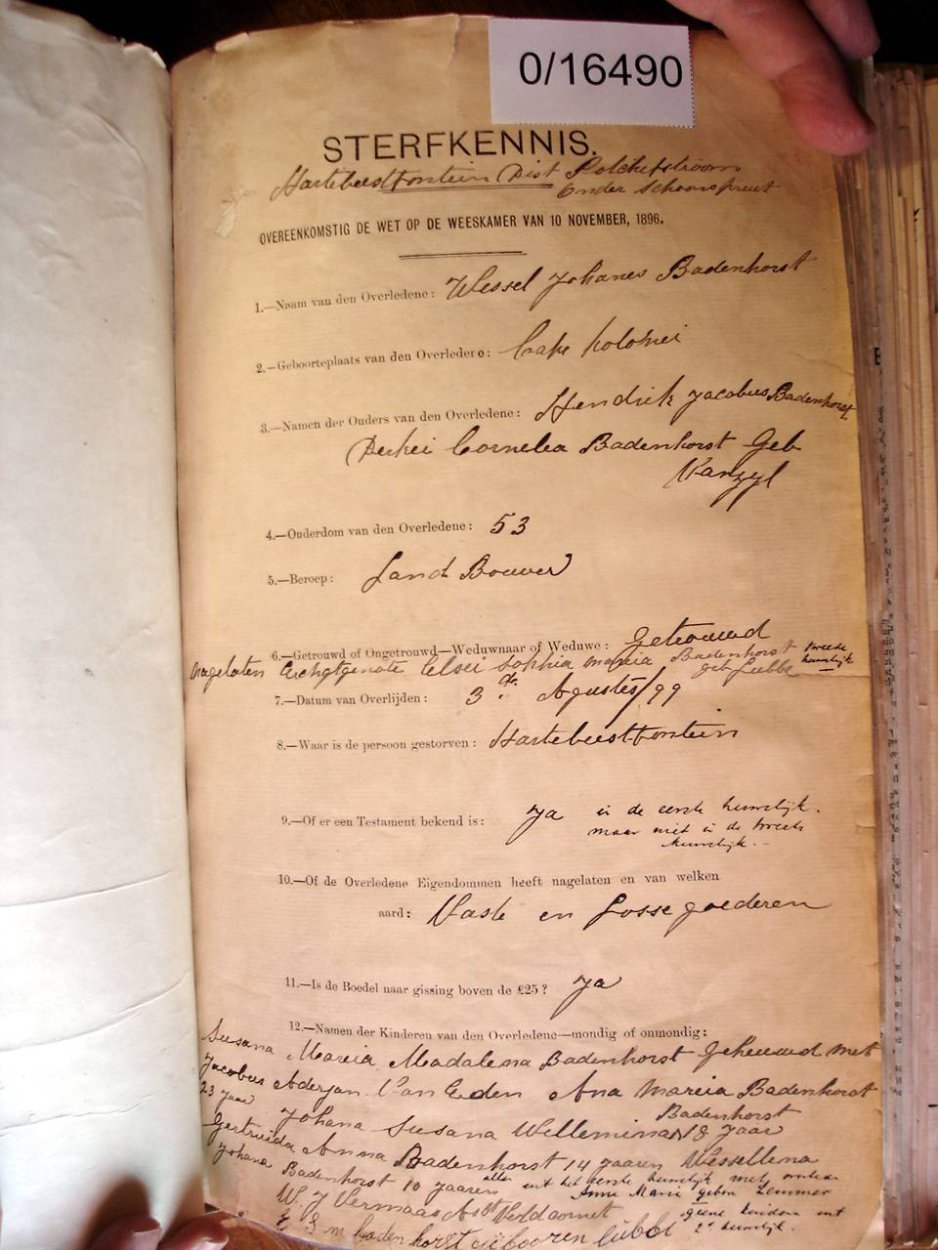 0/16490
STERFKENNIS.
Hartebeestfontein Dist Potchefstroom
Onder Schoonspruit
OVEREENKOMSTIG DE WET OP DE WEESKAMER VAN 10 NOVEMBER, 1896.
1.—Naam van den Overledene: Wessel Johanes Badenhorst
2.—Geboorteplaats van den Overledere: Cape Kolonie
3.—Namen der Ouders van den Overledene: Hendrik Jacobus Badenhorst
Cornelea Badenhorst Geb
Vanzyl
4.—Ouderdom van den Overledene: 53
5.—Beroep: Land Bouwer
6.—Getrouwd of Ongetrouwd—Weduwnaar of Weduwe: Getrouwd
nagelaten Echgtgenote Elsei Sophia Mareia Badenhorst geb Lubbe tweede huwelijk
7.—Datum van Overlijden: 3de Agustes/99
8.—Waar is de persoon gestorven: Hartebeestfontein
9.—Of er een Testament bekend is: Ja in de eerste huwelijk.
maar niet in de tweede
huwelijk.—
10.—Of de Overledene Eigendommen heeft nagelaten en van welken
aard: Vaste en Losse goederen
11.—Is de Boedel naar gissing boven de £25? Ja
12.—Namen der Kinderen van den Overledene—mondig of onmondig:
Susana Mareia Madalena Badenhorst Geheuwd met
Jacobus Aderjan Van Eeden Ana Mareia Badenhorst
23 jaar Johana Susana Wellemina Badenhorst 18 Jaar
Gertruida Anna Badenhorst 14 jaaren Wessellena
Johana Badenhorst 10 jaaren allen uit het eerste huwelijk met
Anna Maria geboren Lemmer
W. J. Vermaas Asst Veldcornet geene kinderen uit
2e huwelijk.
E S M Badenhorst gebooren Lubbe